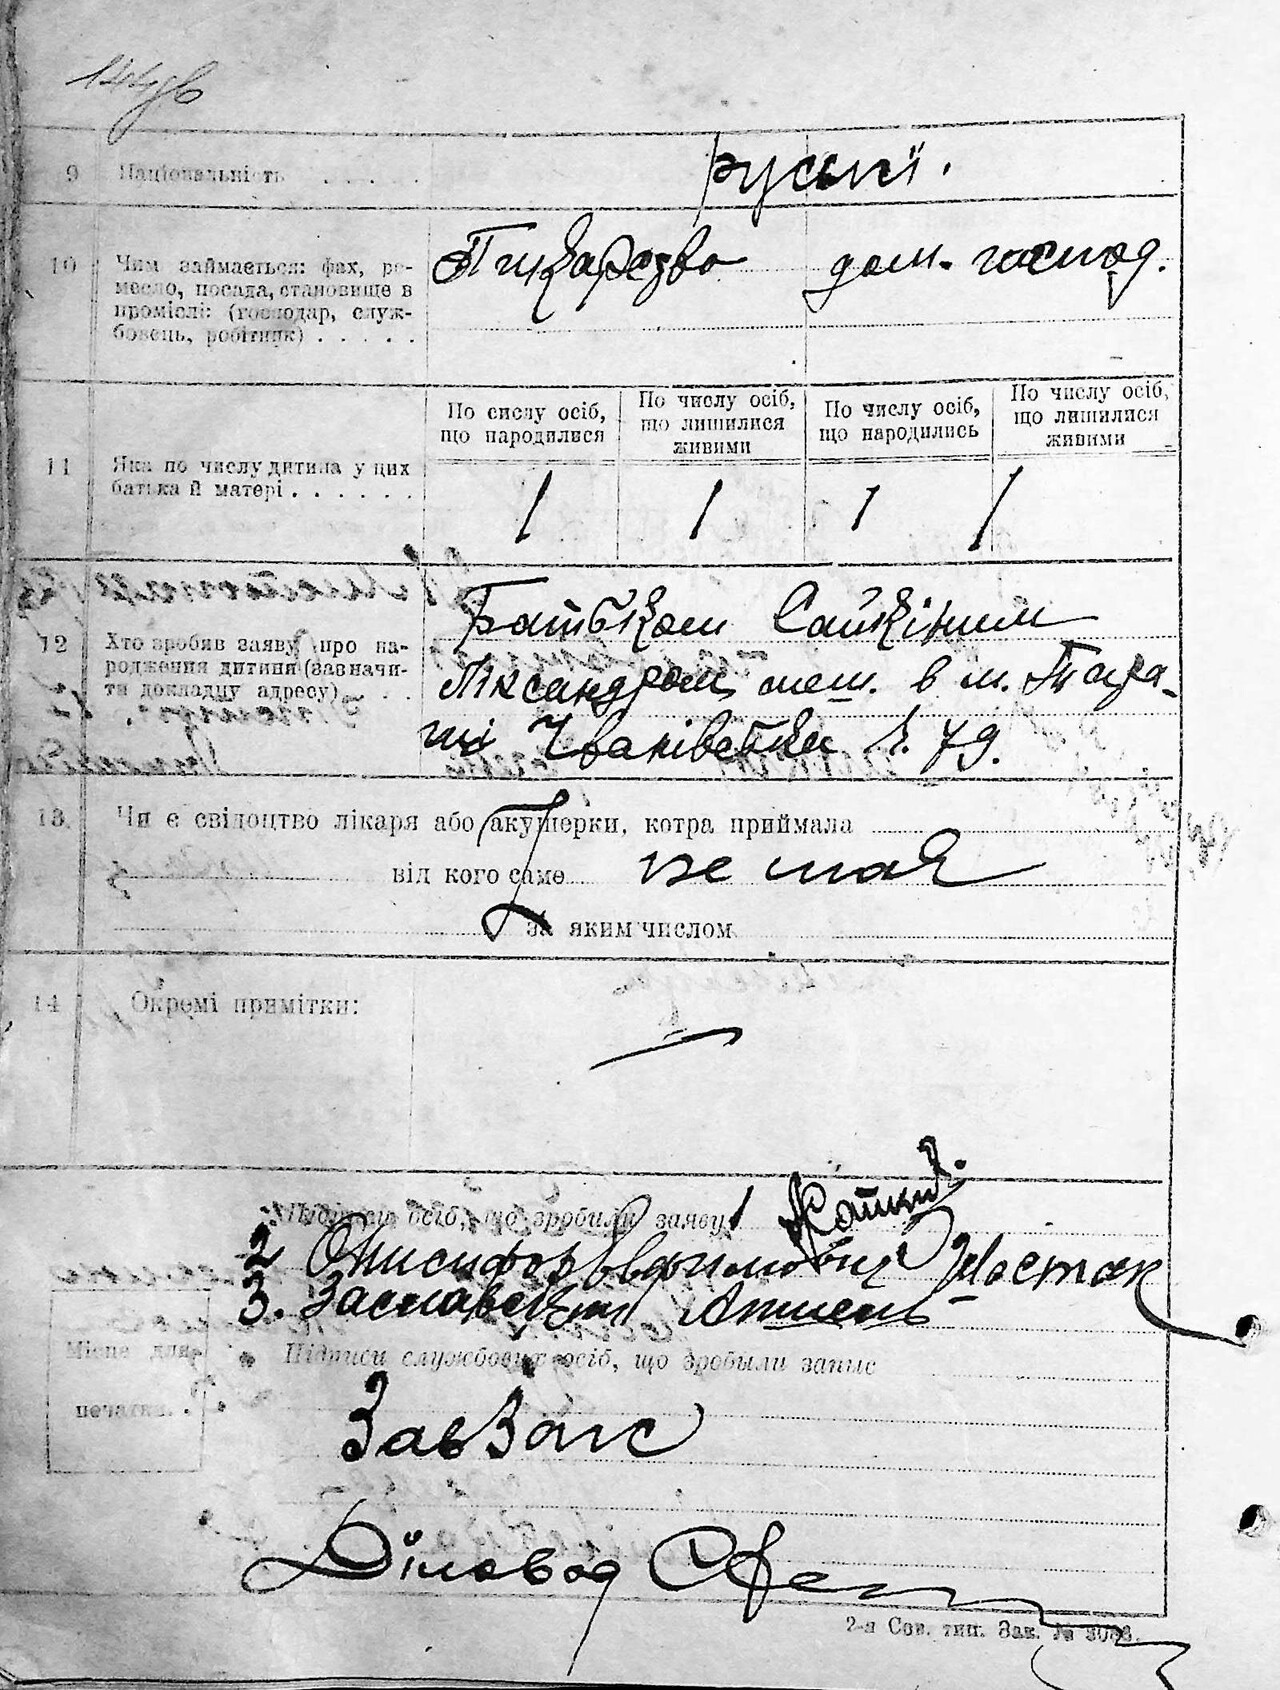 144зв
9 Національність . . . . . руські.
10 Чим займається: фах, ре-
месло, посада, становище в
проміслі: (господар, служ-
бовець, робітник) . . . . .
Пикарство дом. господ.
11 Яка по числу дитина у цих
батька й матері . . . . . .
По числу осіб,
що народилися
По числу осіб,
що лишилися
живими
По числу осіб,
що народились
По числу осіб,
що лишилися
живими
1 1 1 1
12 Хто зробив заяву про на-
родження дитини (зазначи-
ти докладну адресу) . . .
Батьком Сайкіним
Ліксандром меш. в м. Тара-
щі Іванівська ч. 79.
13 Чи є свідоцтво лікаря або акушерки, котра приймала
від кого саме не має
за яким числом
14 Окремі примітки:
Підписи осіб, що зробили заяву 1
2 Онисифор Евфимович Шостак
3. Заславський
Місце для
печатки.
Підписи службових осіб, що зробыли запис
ЗавЗагс
Діловод
2-я Сов. тип. Зак. №